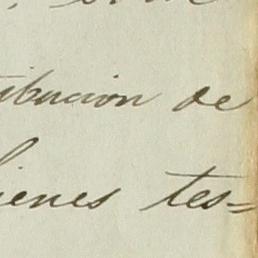 tibucion de
ienes tes=